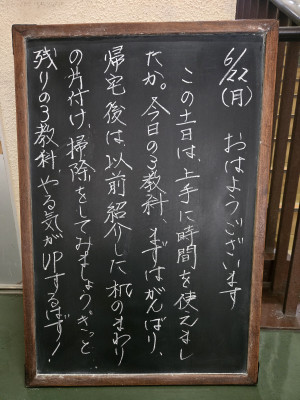 6/22(月)
おはようございます
この土日は、上手に時間を使えまし
たか。今日の3教科、まずはがんばり、
帰宅後は、以前紹介した机のまわり
の片付け、掃除をしてみましょう。きっと…
残りの3教科、やる気がUPするはず!